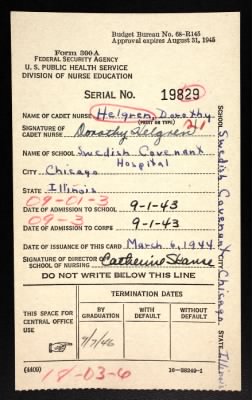 Budget Bureau No. 68-R145
Approval expires August 31, 1945
Form 300-A
FEDERAL SECURITY AGENCY
U. S. PUBLIC HEALTH SERVICE
DIVISION OF NURSE EDUCATION
SERIAL NO. 19829
NAME OF CADET NURSE Helgren, Dorothy
(PRINT OR TYPE)
SIGNATURE OF CADET NURSE Dorothy Helgren 21
NAME OF SCHOOL Swedish Covenant Hospital
CITY Chicago
STATE Illinois
09-01-3
DATE OF ADMISSION TO SCHOOL 9-1-43
09-3
DATE OF ADMISSION TO CORPS 9-1-43
DATE OF ISSUANCE OF THIS CARD March 6, 1944
SIGNATURE OF DIRECTOR SCHOOL OF NURSING Catherine
DO NOT WRITE BELOW THIS LINE
TERMINATION DATES
THIS SPACE FOR CENTRAL OFFICE USE
BY GRADUATION
WITH DEFAULT
WITHOUT DEFAULT
9/7/46
(4409)
16-38249-1
SCHOOL Swedish Covenant CITY Chicago STATE Illinois